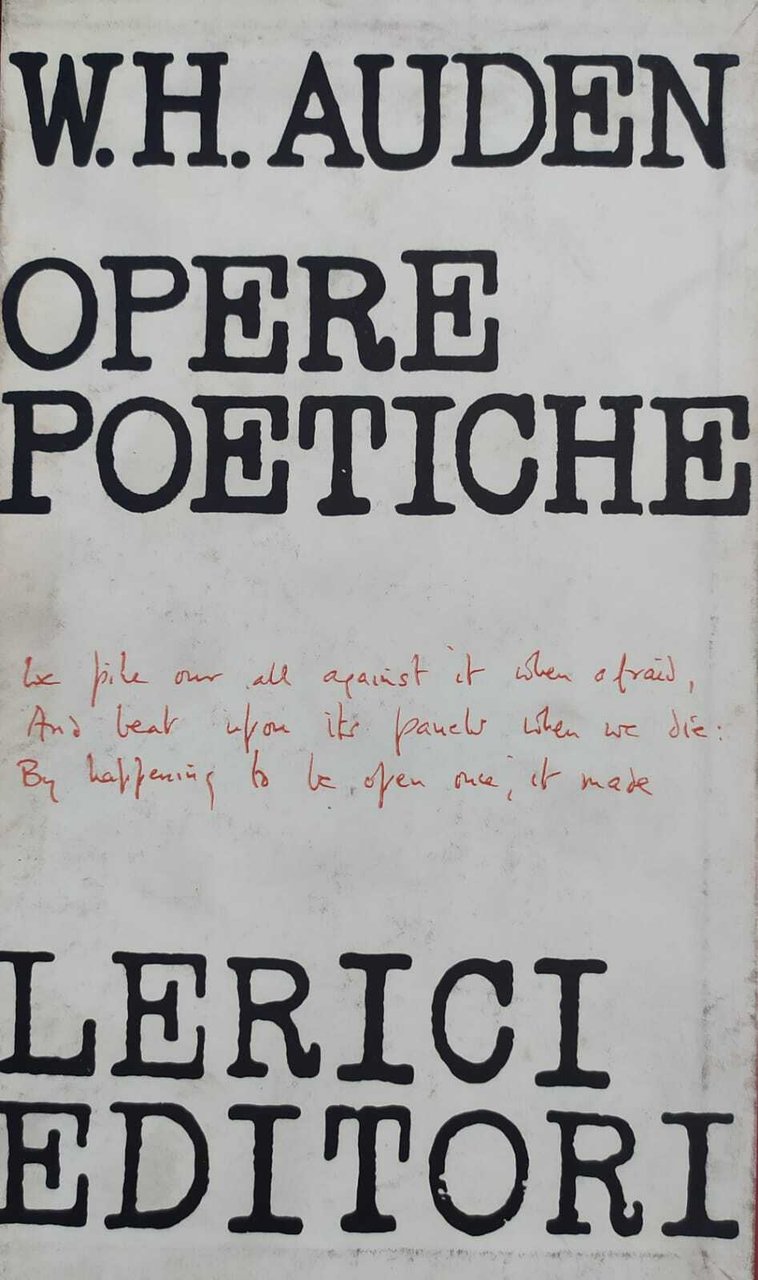 W.H. AUDEN
OPERE
POETICHE
We pile our all against it when afraid,
And beat upon its panels when we die:
By happening to be open once, it made
LERICI
EDITORI